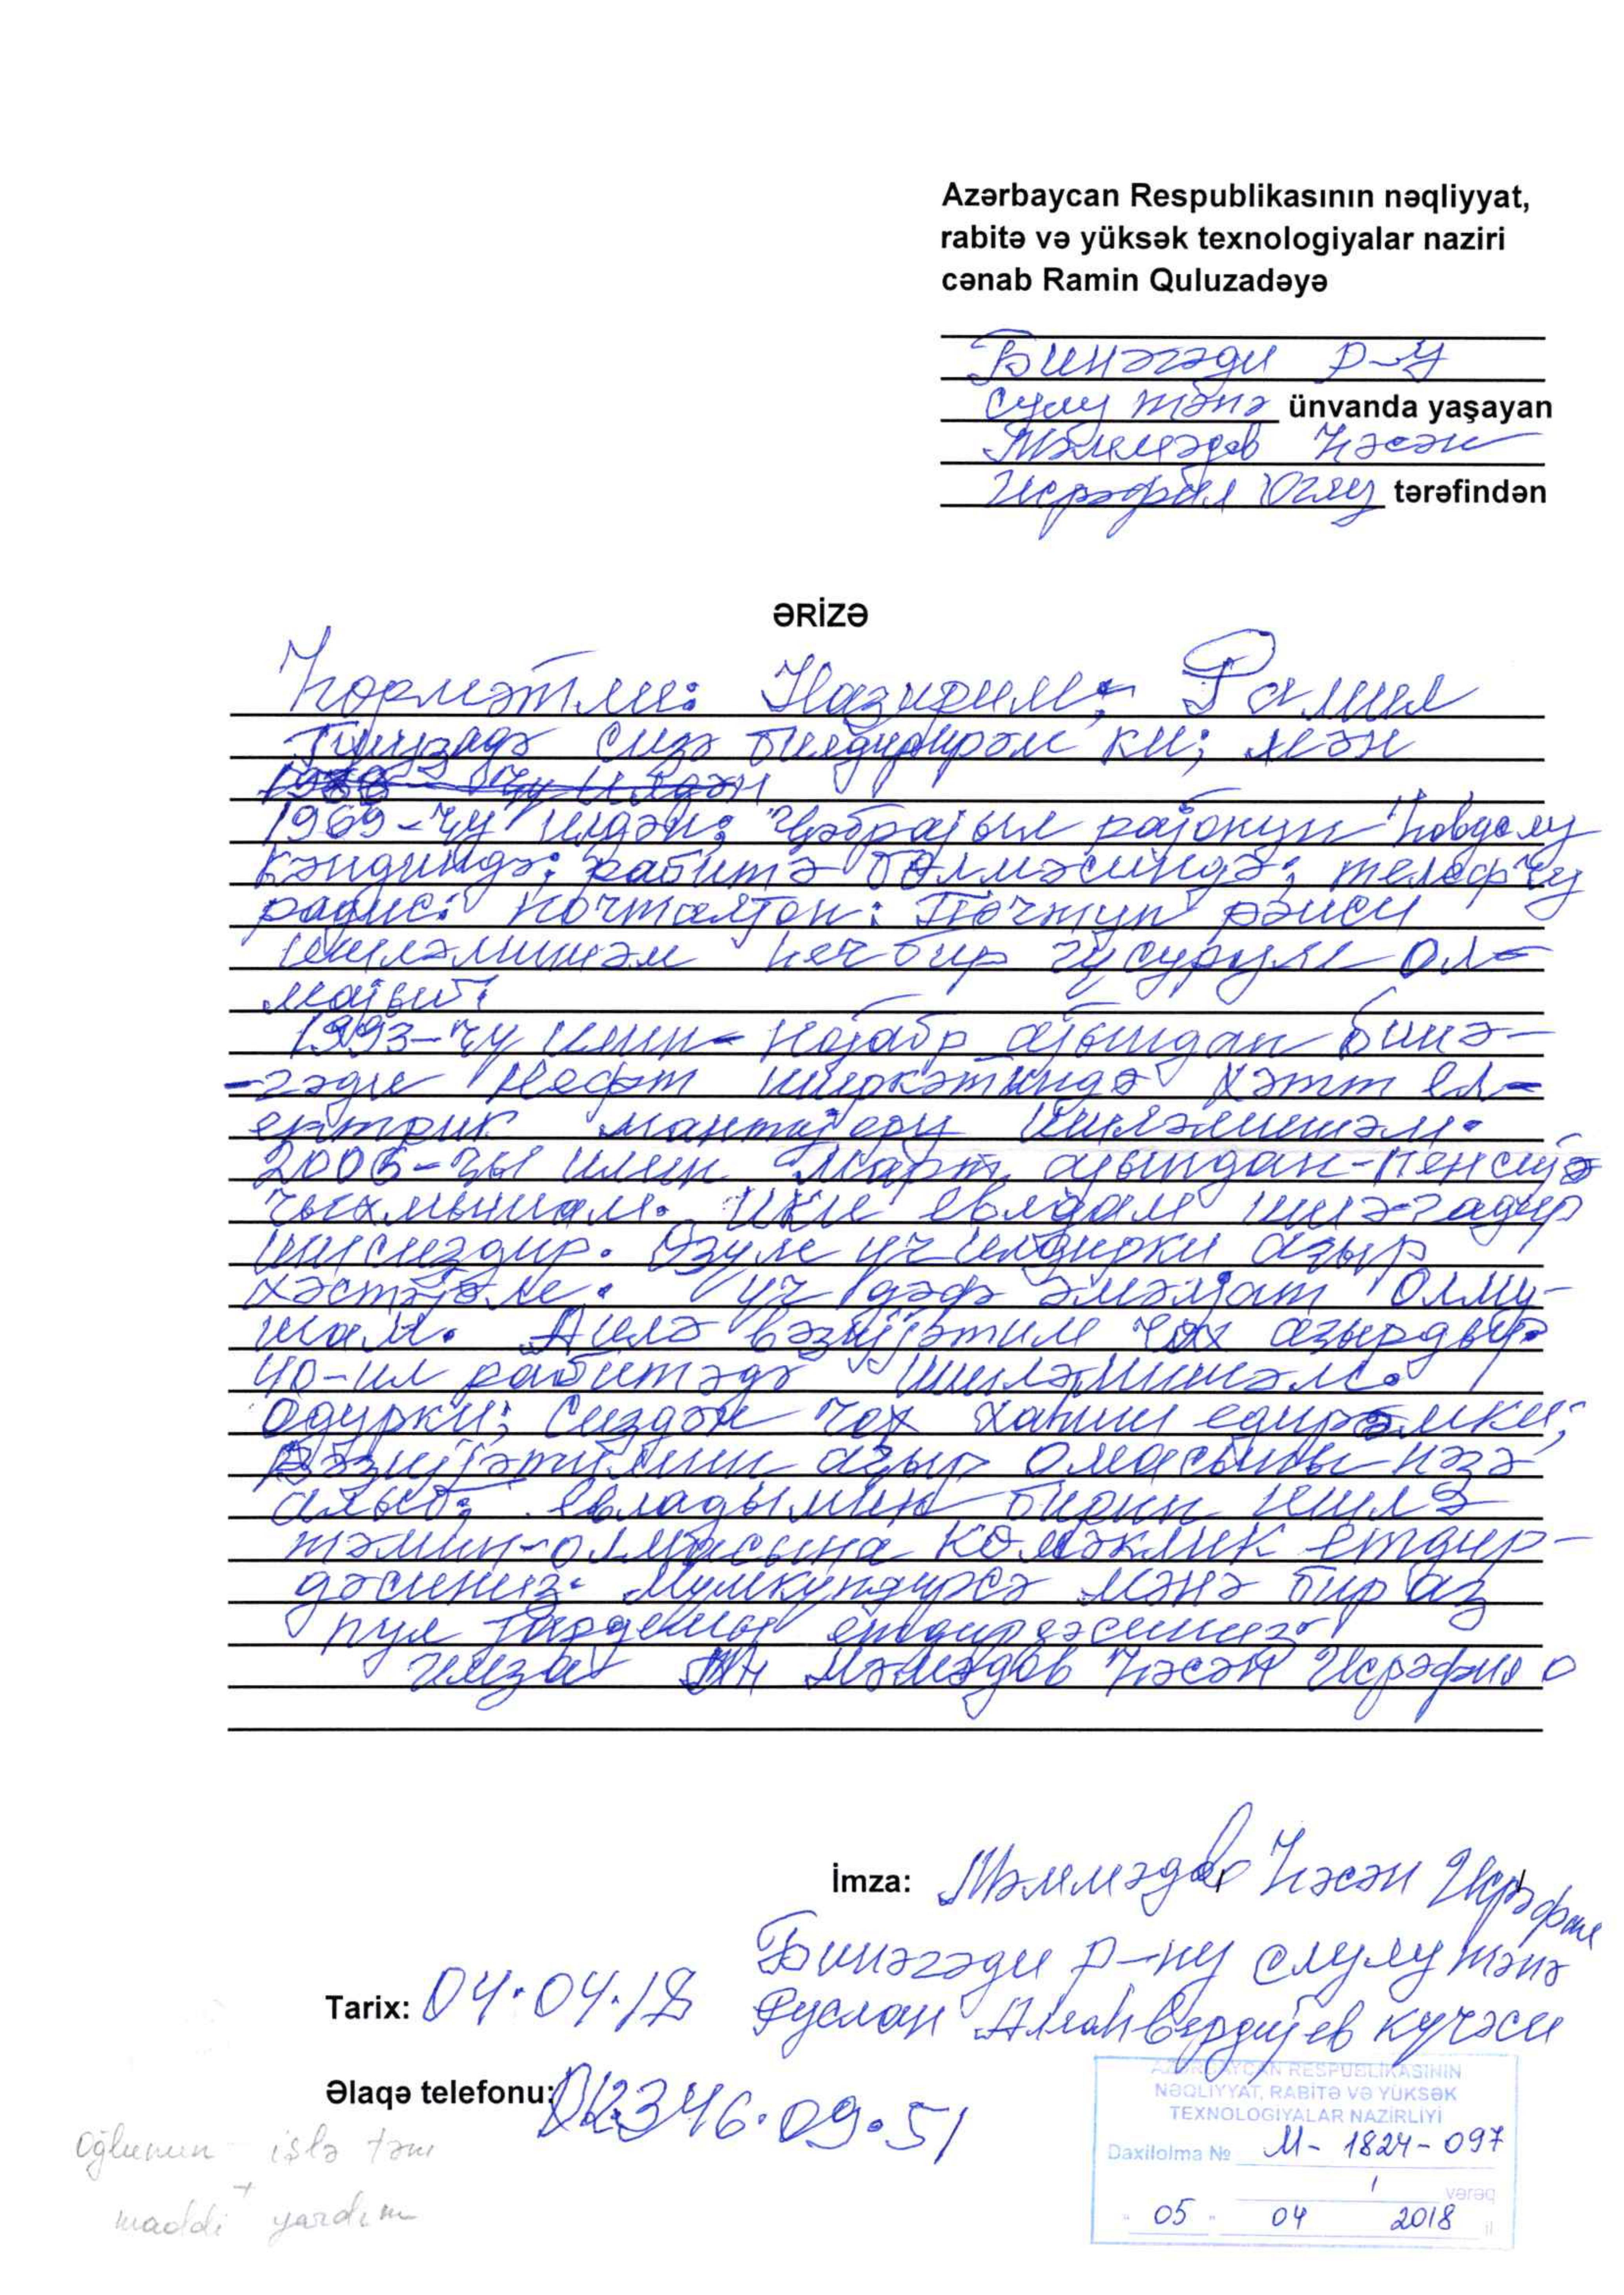 Azərbaycan Respublikasının nəqliyyat,
rabitə və yüksək texnologiyalar naziri
cənab Ramin Quluzadəyə
Бинәгәди р-у
Сулу тәпә ünvanda yaşayan
Мәммәдов Һәсән
Исрафил Оғлу tərəfindən
ƏRİZƏ
Һөрмәтли: Назирим; Рамил
сизә билдирирәм ки; мән
1969-чу илдән; Ҹәбрајыл рајонун Һовуслу
кәндиндә; рабитә бөлмәсиндә;
радис: почталјон: Почтун рәиси
ишләмишәм һечбир гусурум ол-
мајыб.
1993-чу илин- нојабр ајындан Бинә-
-гәди Нефт ширкәтиндә хәтт ел-
ектрик ишләмишәм.
2006-чы илин март ајындан-пенсијә
чыхмышам. Ики евладам
ишсиздир. Өзүм үч илдирки ағыр
хәстәјәм. Үч дәфә әмәлјат олму-
шам. Аилә вәзијјәтим чох ағырдыр.
40-ил рабитәдә ишләмишәм.
Одурки; Сиздән чох хаһиш едирәмки;
вәзијјәтимин ағыр олмасыны нәзә
алыб; евладымин бирин ишлә
тәмин-олмасына көмәклик етдир-
дәсиниз. Мүмкүндүрсә мәнә бир аз
пул јардемы етдирдәсиниз.
имза Мәмәдов Һәсән Исрәфил о
İmza: Мәммәдов Һәсән Исрәфил
Бинәгәди р-ну сулу тәпә
Tarix: 04.04.18 Руслан Аллаһвердијев күчәси
Əlaqə telefonu: 012346.09.51
AZƏRBAYCAN RESPUBLİKASININ
NƏQLİYYAT, RABİTƏ VƏ YÜKSƏK
TEXNOLOGİYALAR NAZİRLİYİ
Daxilolma № M- 1824-097
1 vərəq
" 05 " 04 2018 il
oğlunun işlə təm
+
maddi yardım